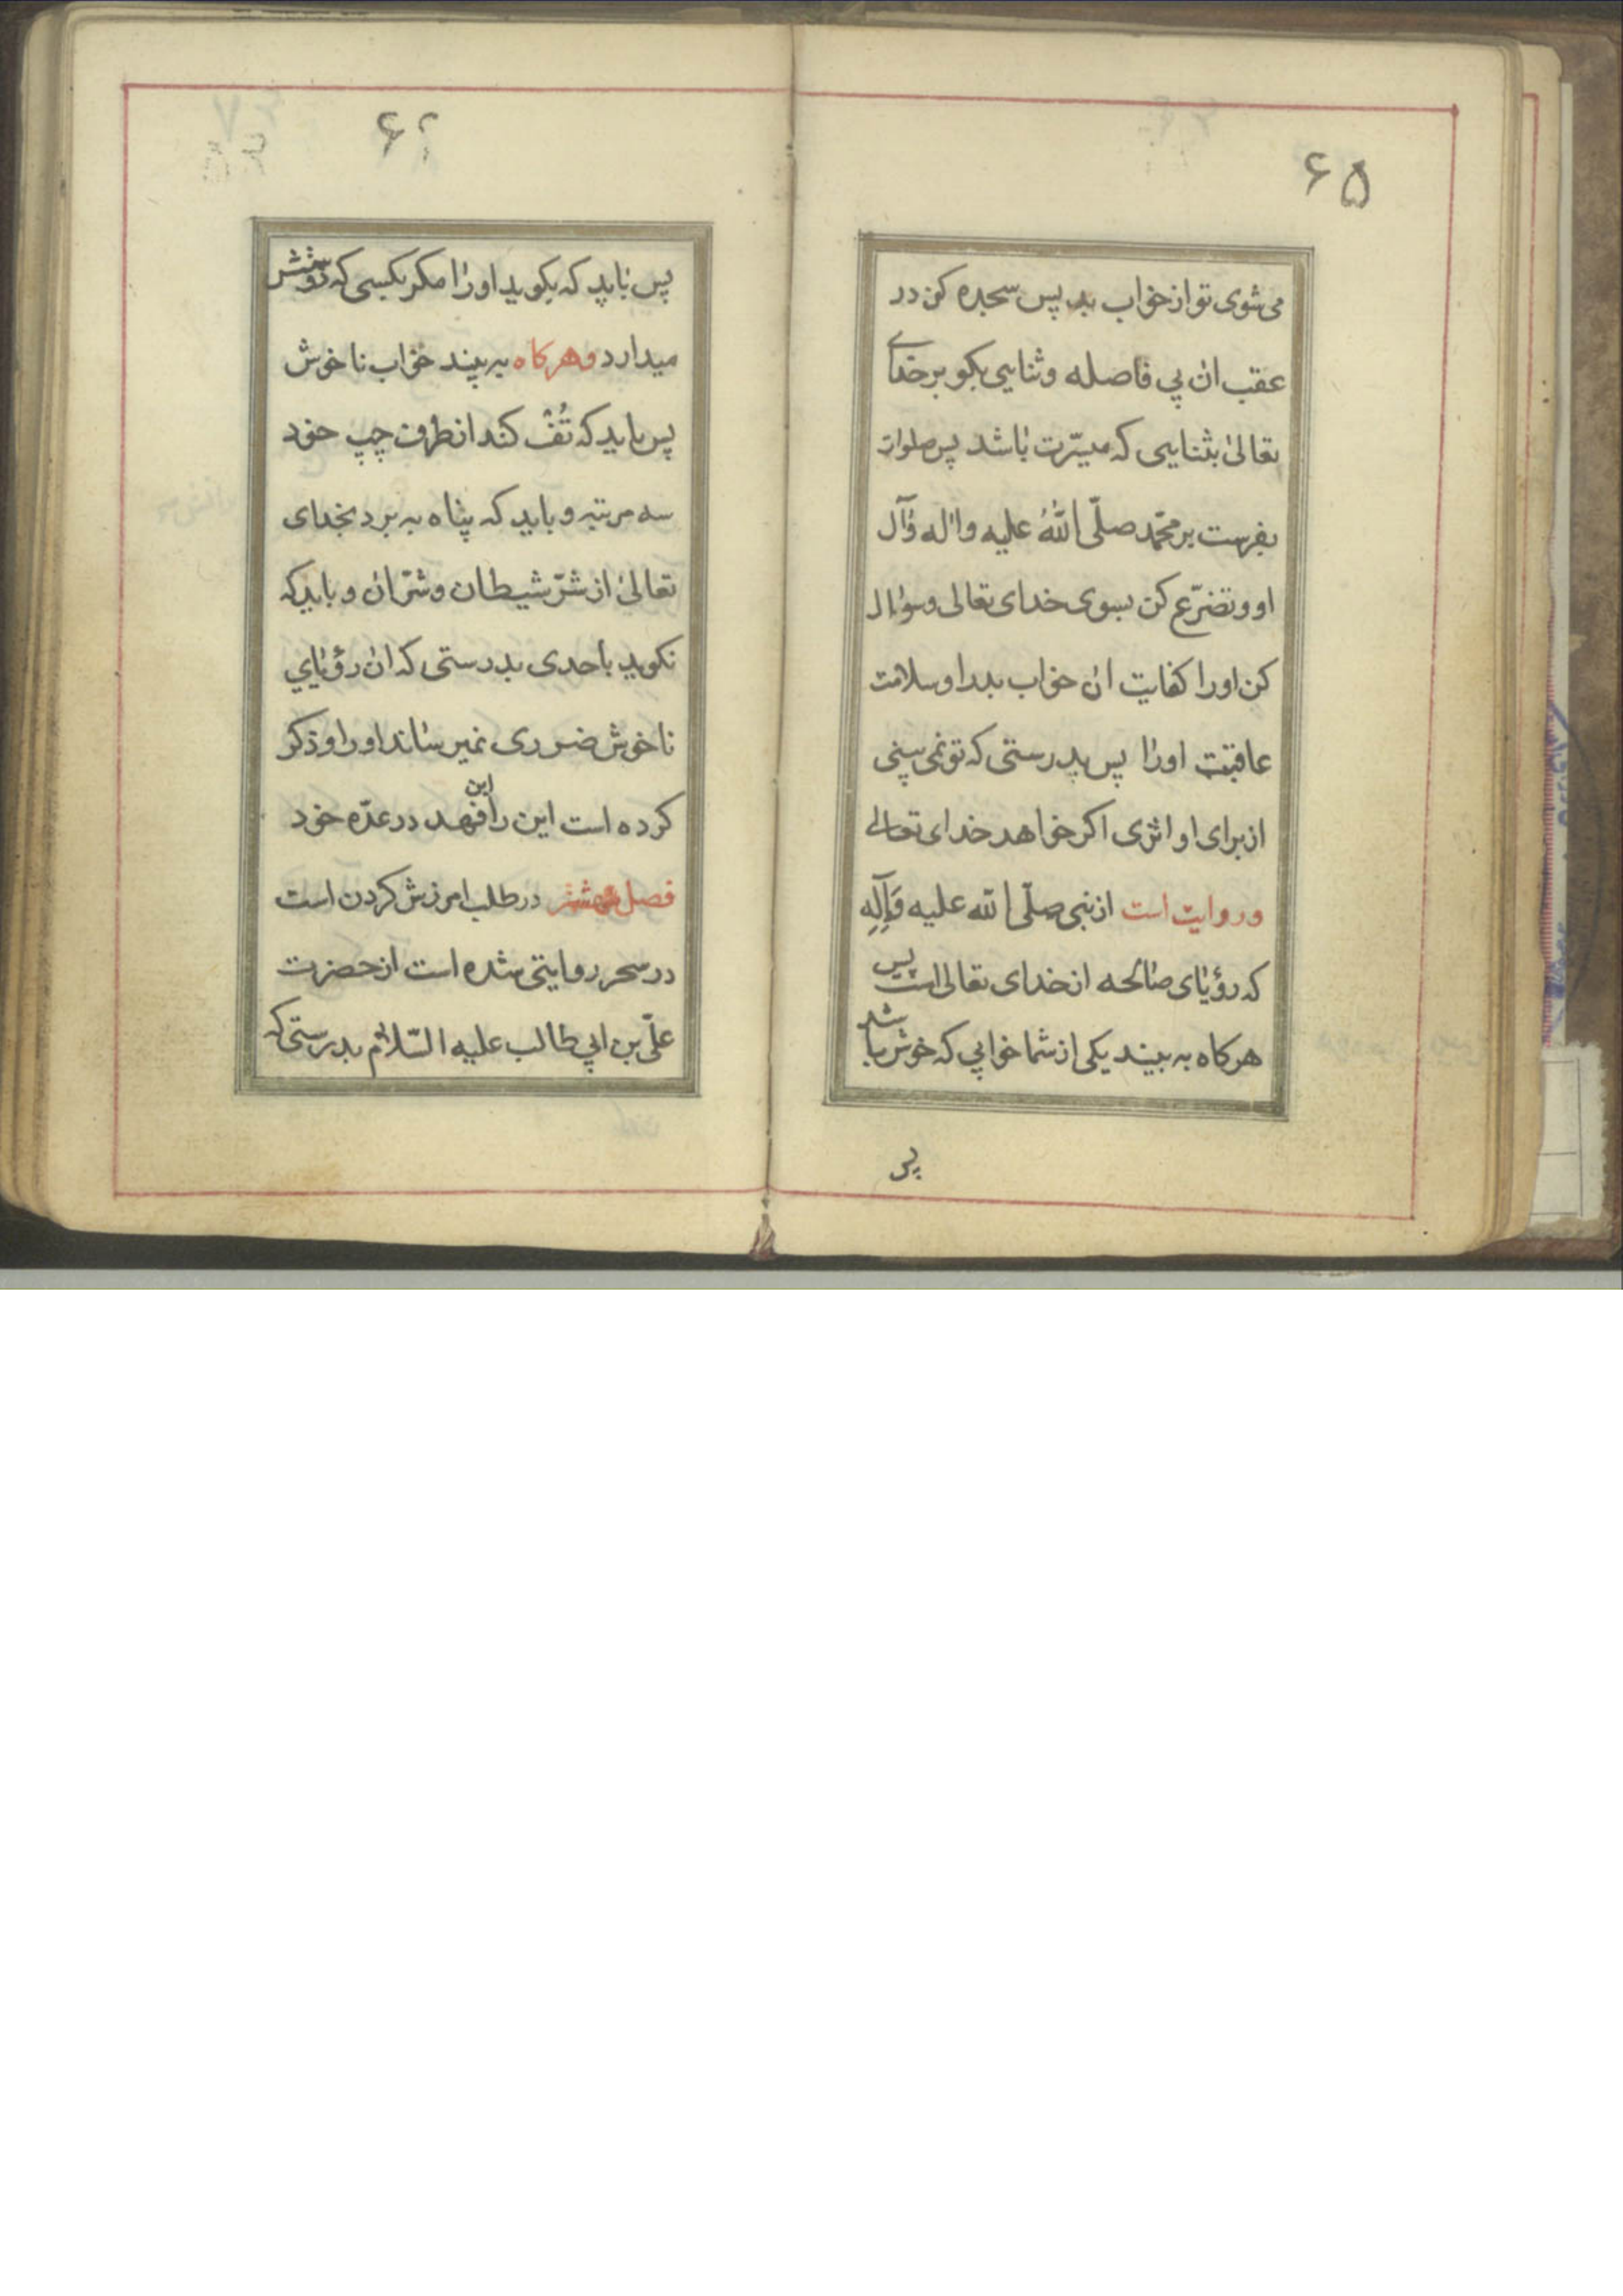 ۶۵
می شوی تو از خواب بد پس سجده کن در
عقب ان بی فاصله و ثنایی بکو بر خدای
تعالی بثنایی که میسّرت باشد پس صلوات
بفرست بر محمّد صلّی اللّه علیه واله وآل
او و تضرّع کن بسوی خدای تعالی و سؤال
کن او را کفایت ان خواب بد را و سلامت
عاقبت اورا پس بدرستی که تو نمی بینی
از برای او اثری اکر خواهد خدای تعالی
و روایت است از نبی صلّی اللّه علیه وَآلِهِ
که رؤیای صالحه از خدای تعالی است پس
هرکاه به بیند یکی از شما خوابی که خوش باشد
پس
۶۶
پس باید که نکوید اورا مکر بکسی که دوستش
میدارد و هرکاه به بیند خواب ناخوش
پس باید که تُفْ کند از طرف چپ خود
سه مرتبه و باید که پناه به برد بخدای
تعالی از شرّ شیطان و شرّ ان و باید که
نکوید باحدی بدرستی که ان رؤیای
ناخوش ضرری نمیرساند او را و ذکر
کرده است این را ابن فهد در عدّه خود
فصل ششم در طلب امرزش کردن است
در سحر روایتی شده است از حضرت
علّی بن ابی طالب علیه السّلام بدرستی که